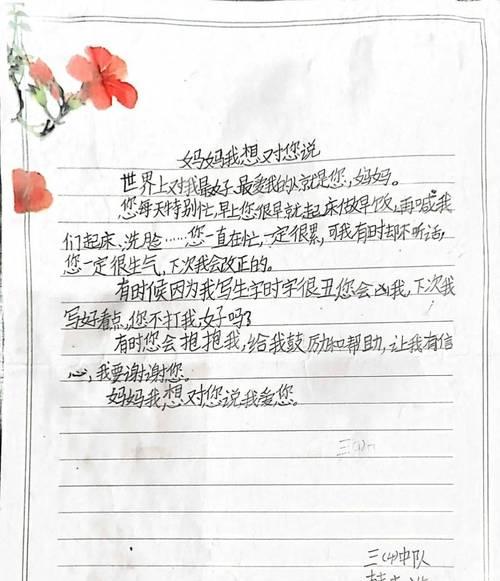 妈妈我想对您说
世界上对我最好、最爱我的人就是您,妈妈。
您每天特别忙,早上您很早就起床做早饭,再喊我
们起床、洗脸……您一直在忙,一定很累,可我有时却不听话,
您一定很生气,下次我会改正的。
有时候因为我写生字时字很丑您会凶我,下次我
写好看点,您不打我好吗?
有时您会抱抱我,给我鼓励和帮助,让我有信
心,我要谢谢您。
妈妈我想对您说我爱您。
三(4)中队